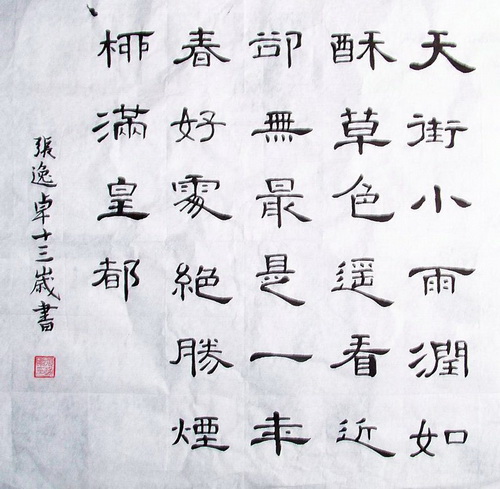 天街小雨潤如
酥草色遥看近
卻無最是一年
春好處絕勝煙
柳滿皇都
張逸卓十三歲書